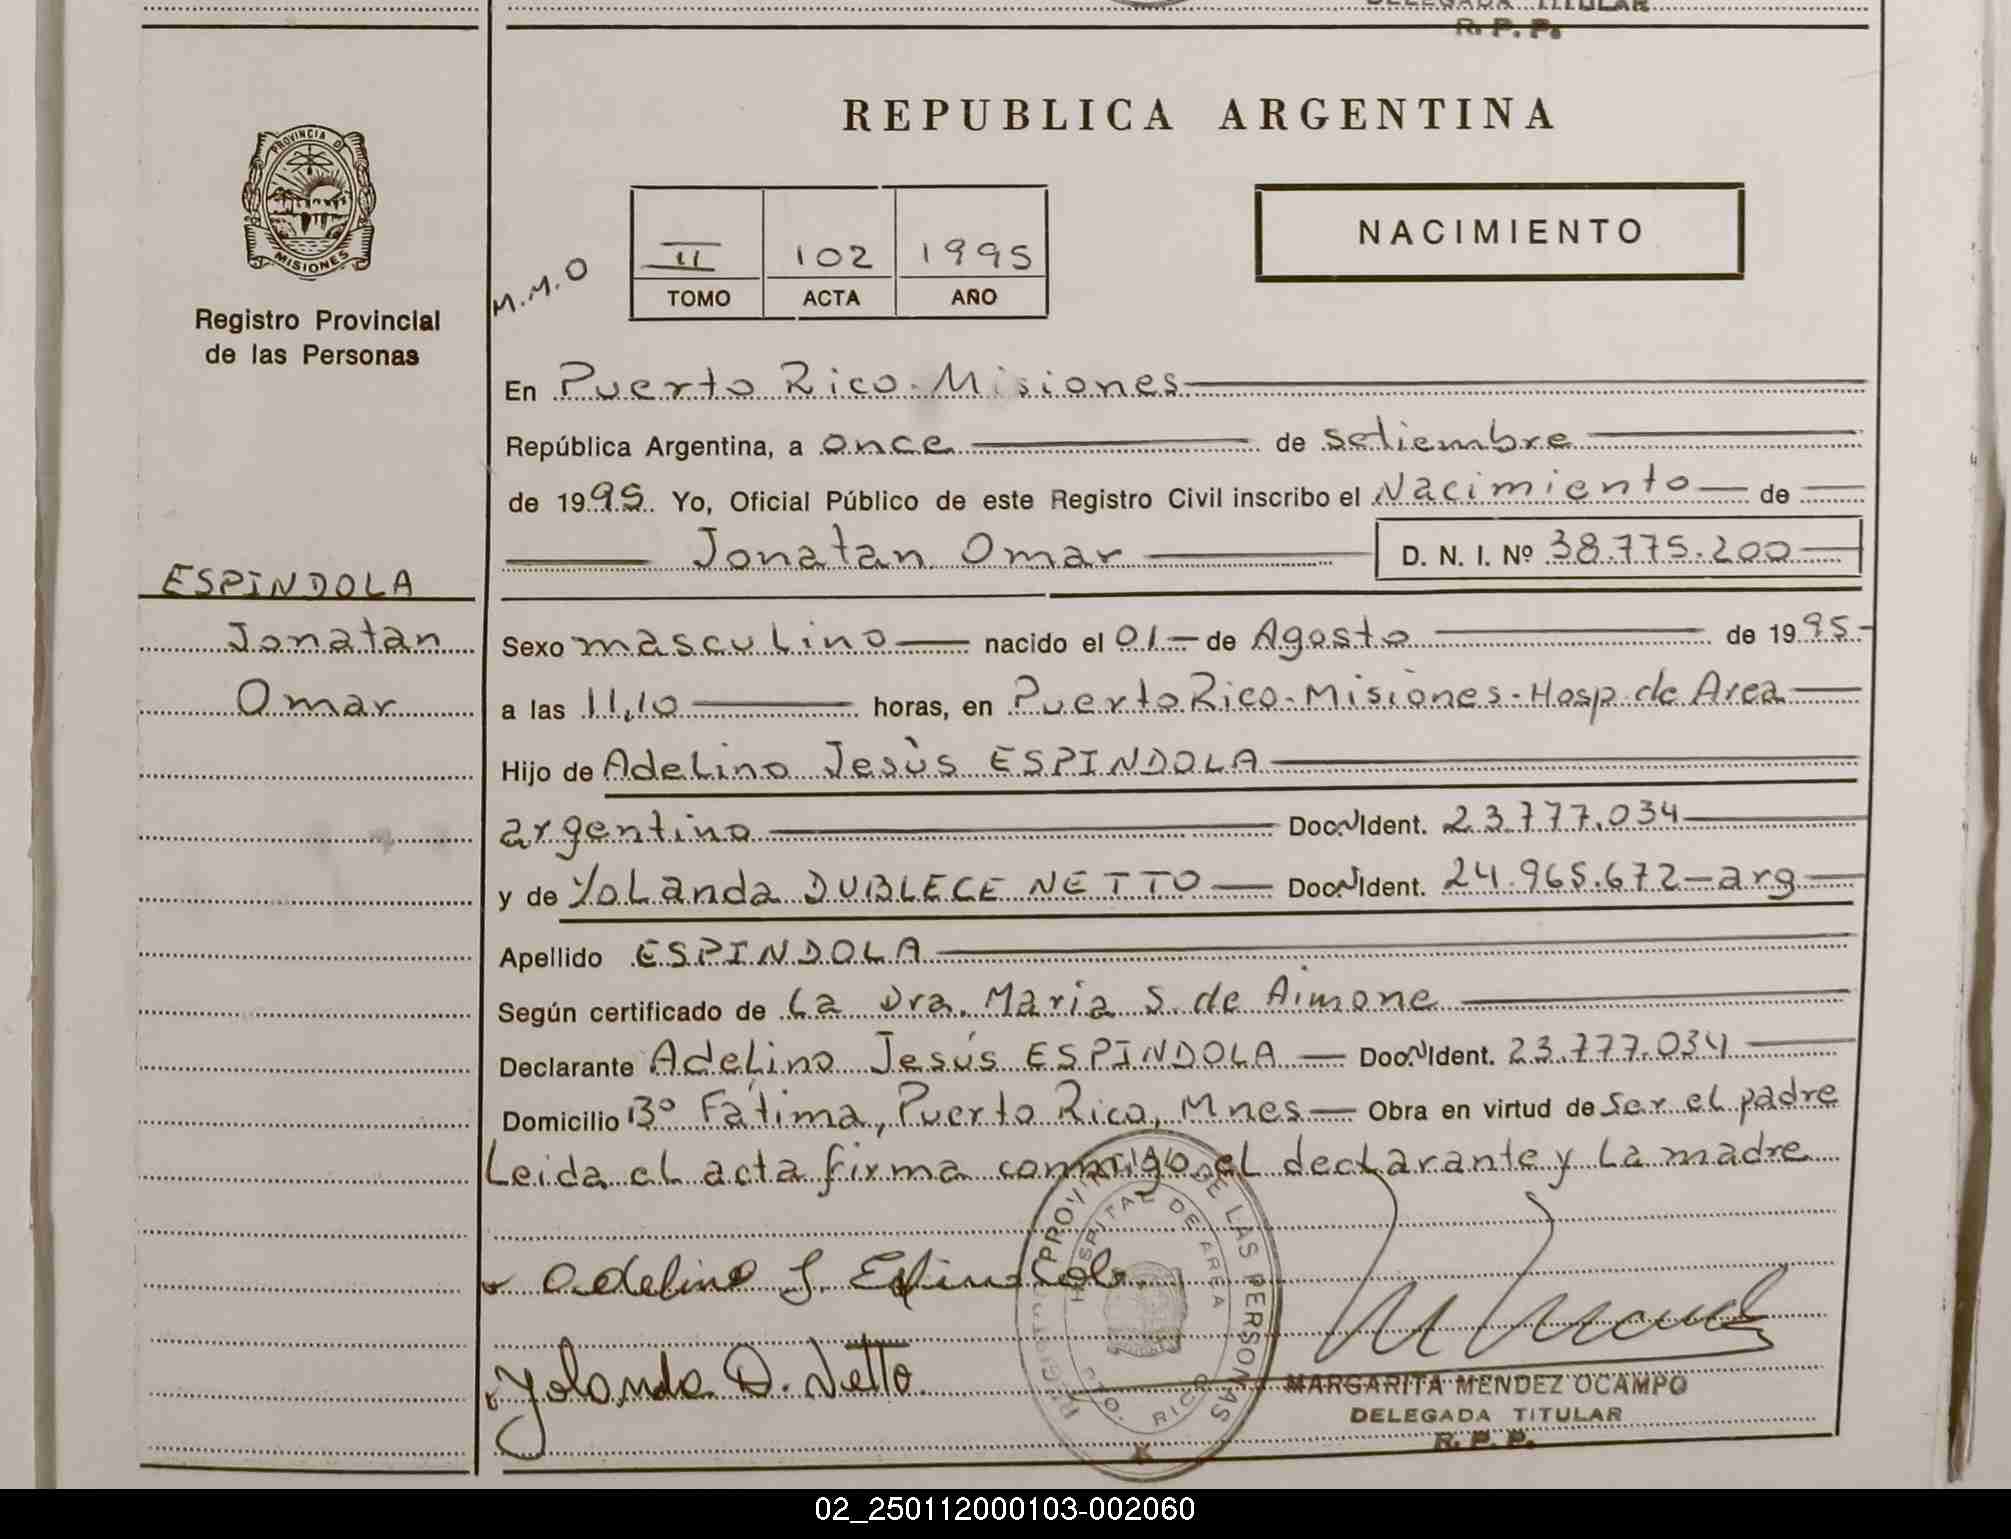 DELEGADA TITULAR
R. P. P.
REPUBLICA ARGENTINA
PROVINCIA DE
MISIONES
Registro Provincial
de las Personas
M.M.O
II 102 1995
TOMO ACTA AÑO
NACIMIENTO
En Puerto Rico - Misiones
República Argentina, a once de setiembre
de 1995 Yo, Oficial Público de este Registro Civil inscribo el Nacimiento de
Jonatan Omar D. N. I. Nº 38.775.200
ESPINDOLA
Jonatan
Omar
Sexo masculino nacido el 01 de Agosto de 1995
a las 11,10 horas, en Puerto Rico - Misiones - Hosp. de Area
Hijo de Adelino Jesùs ESPINDOLA
argentino Doc. Ident. 23.777.034
y de Yolanda DUBLECE NETTO Doc. Ident. 24.965.672 - arg
Apellido ESPINDOLA
Según certificado de La Dra. Maria S. de Aimone
Declarante Adelino Jesús ESPINDOLA Doc. Ident. 23.777.034
Domicilio Bº Fátima, Puerto Rico, Mnes Obra en virtud de ser el padre
Leida el acta firma conmigo el declarante y la madre
REGISTRO PROVINCIAL DE LAS PERSONAS
HOSPITAL DE AREA
PTO. RICO
Adelino J. Espindola
Yolanda D. Netto
MARGARITA MENDEZ OCAMPO
DELEGADA TITULAR
R. P. P.
02_250112000103-002060